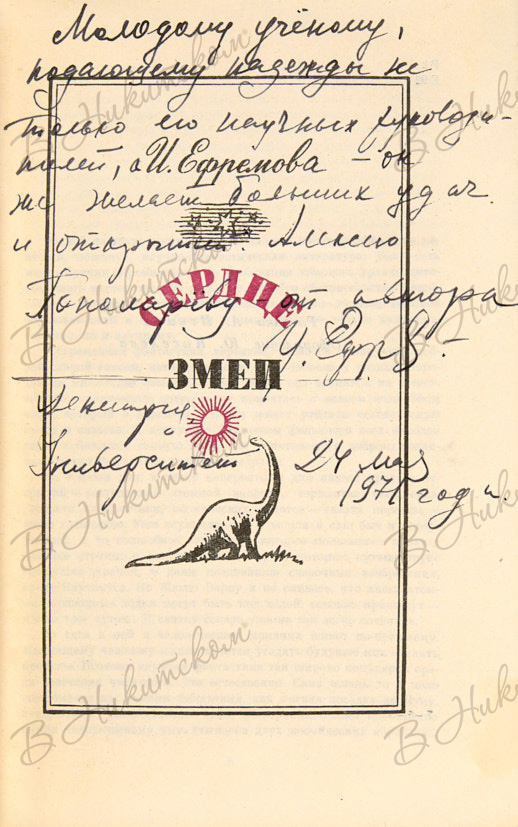 Молодому учёному,
подающему надежды не
только его научных руководи-
телей, а И. Ефремова – он
же желает больших удач
и открытий. Алексею
СЕРДЦЕ
Пономарёву от автора
И. Ефр
ЗМЕИ
Ленинград
Университет 24 мая
1971 года
В Никитском
В Никитском
В Никитском
В Никитском
В Никитском
В Никитском
В Никитском